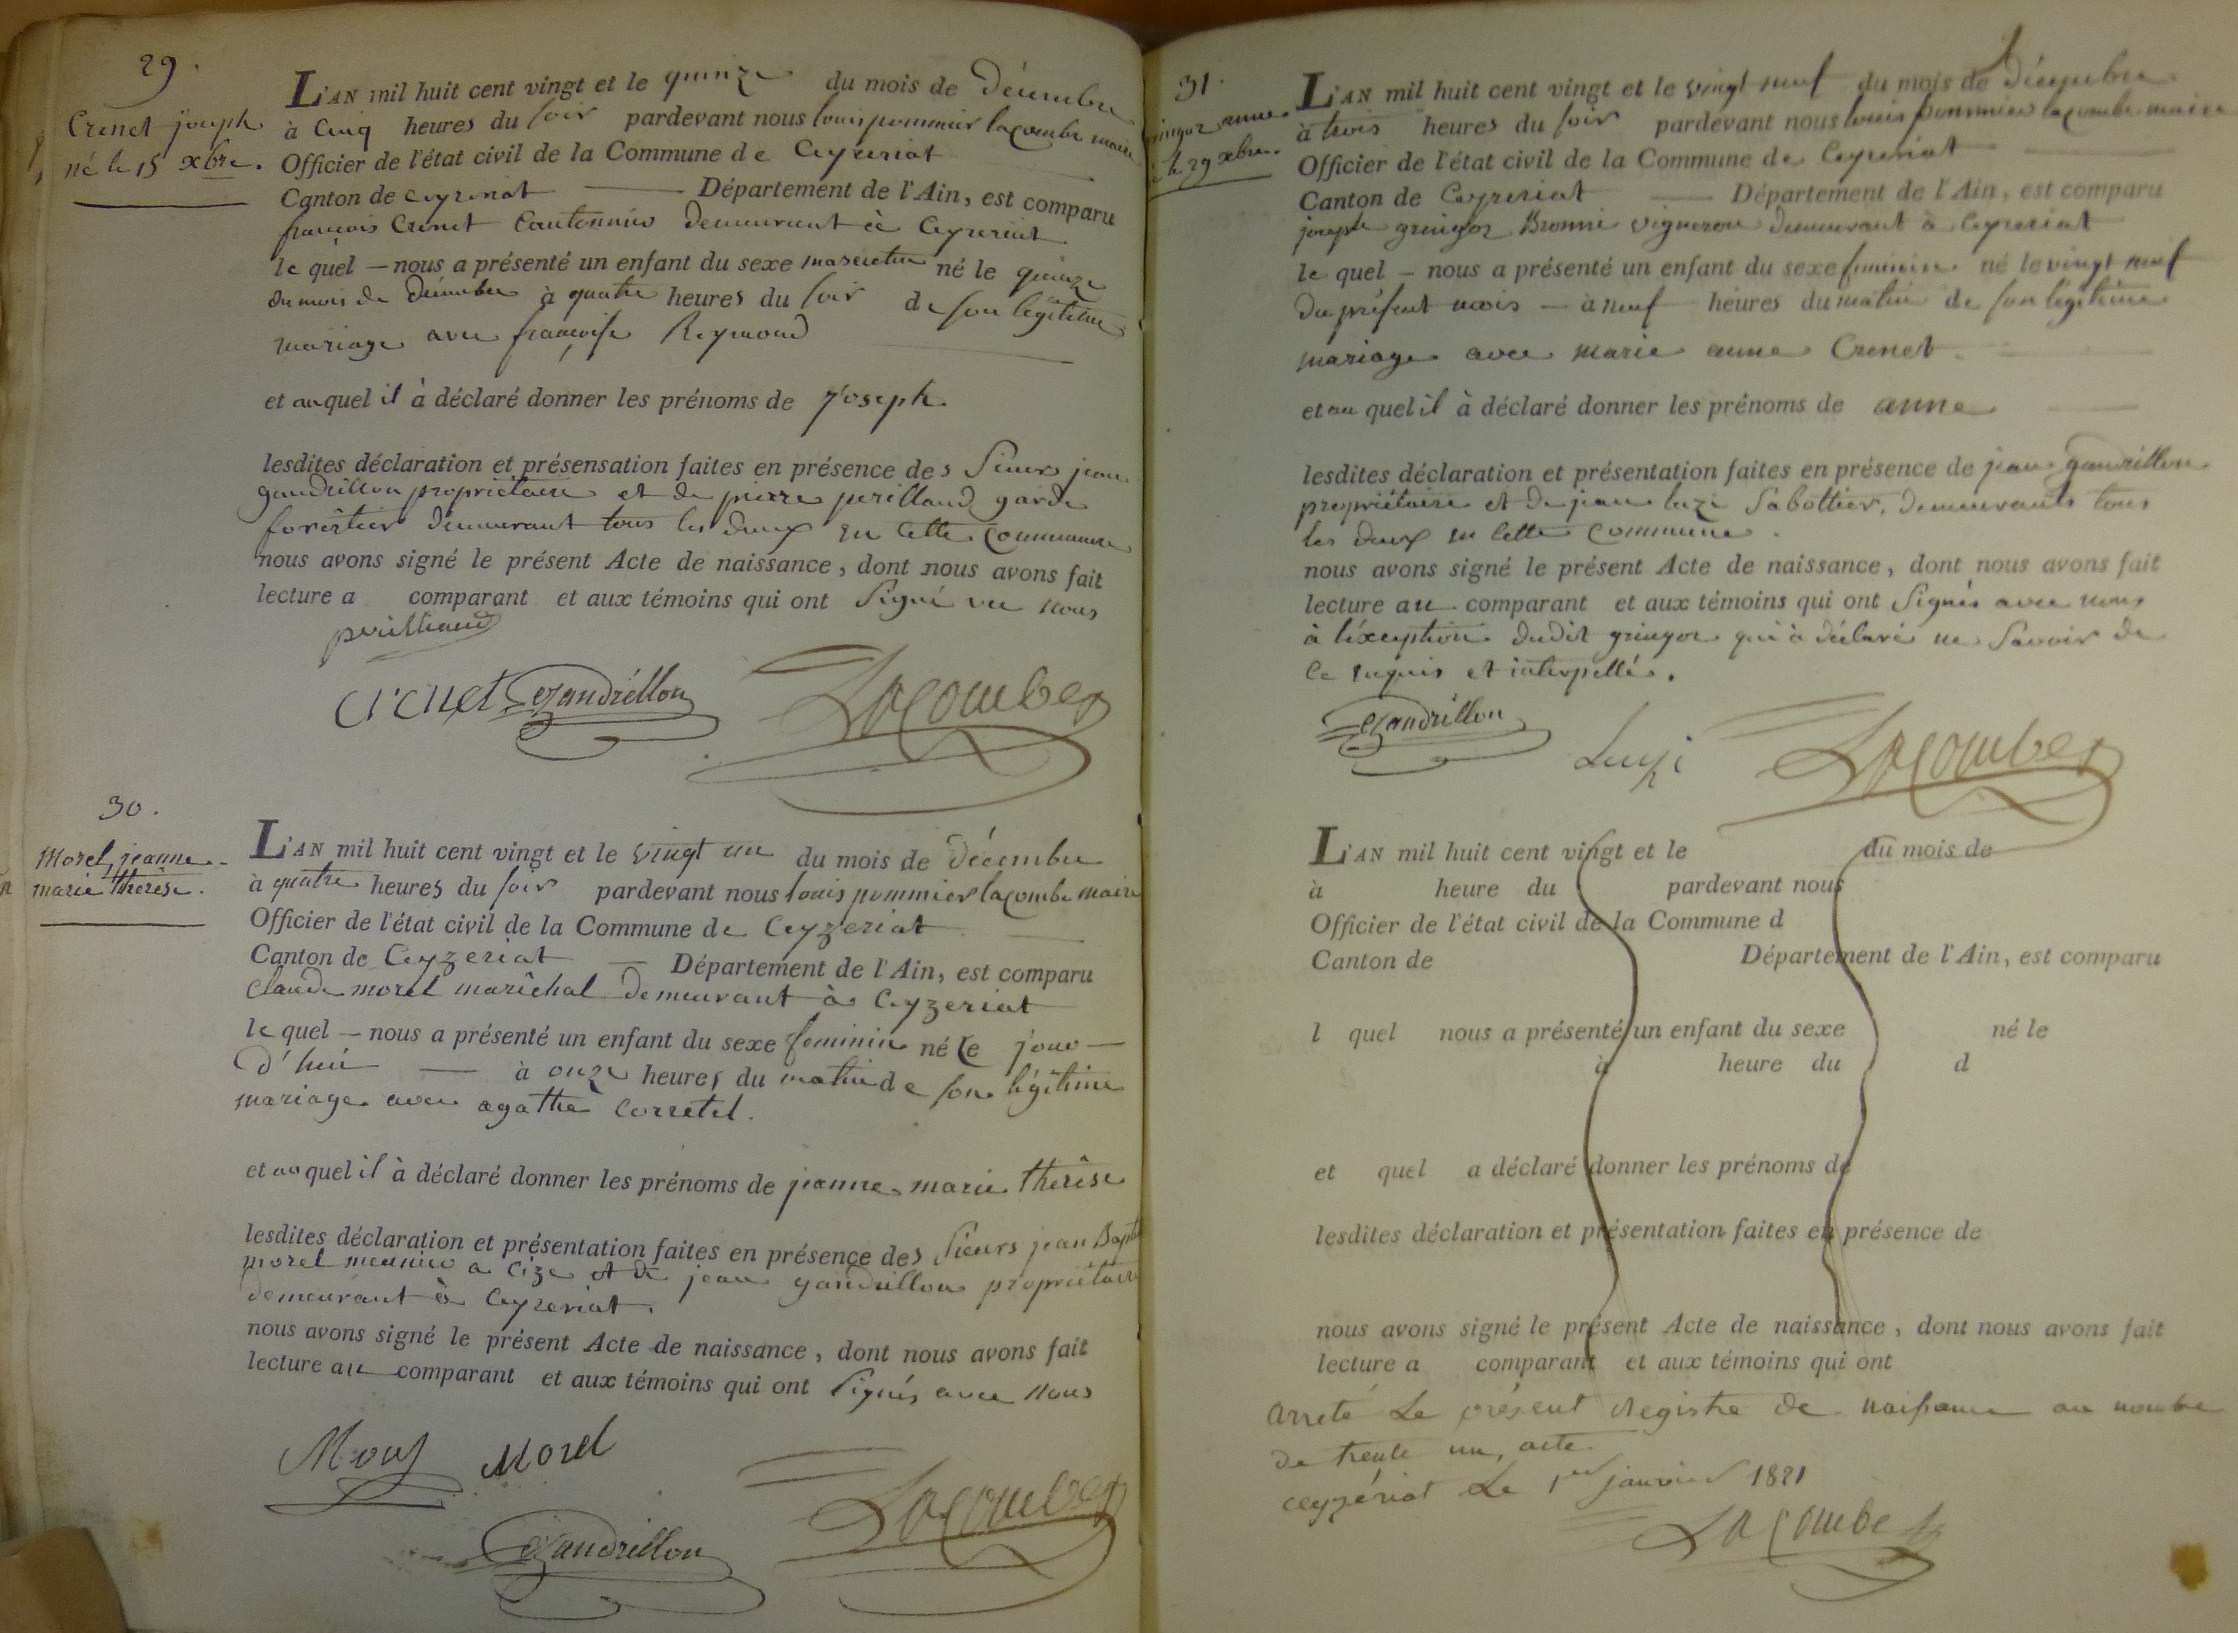 29.
Crenet joseph
né le 15 xbre.
L'AN mil huit cent vingt et le quinze du mois de Décembre
à Cinq heures du soir pardevant nous louis pommier lacombe maire
Officier de l'état civil de la Commune de Ceyzeriat
Canton de ceyzeriat Département de l'Ain, est comparu
françois Crenet Cantonnier demeurant à Ceyzeriat
le quel nous a présenté un enfant du sexe masculin né le quinze
du mois de décembre à quatre heures du soir de son légitime
mariage avec françoise Reymond
et au quel il à déclaré donner les prénoms de joseph.
lesdites déclaration et présensation faites en présence des Sieurs jean
gandrillon propriétaire et de pierre perilland garde
forêstier demeurant tous les deux en cette commune
nous avons signé le présent Acte de naissance, dont nous avons fait
lecture a comparant et aux témoins qui ont Signé vec nous
perilland
crenet gandrillon Lacombe
30.
Morel, jeanne
marie thérèse.
L'AN mil huit cent vingt et le vingt un du mois de décembre
à quatre heures du soir pardevant nous louis pommier lacombe maire
Officier de l'état civil de la Commune de Ceyzeriat
Canton de Ceyzeriat Département de l'Ain, est comparu
Claude morel marêchal demeurant à Ceyzeriat
le quel nous a présenté un enfant du sexe feminin né le jour
d'hui à onze heures du matin de son légitime
mariage avec agathe Corretel.
et au quel il à déclaré donner les prénoms de jeanne marie thérèse
lesdites déclaration et présentation faites en présence des Sieurs jean Bapte
morel meunier a Cize et de jean gandrillon propriétaire
demeurant à Ceyzeriat.
nous avons signé le présent Acte de naissance, dont nous avons fait
lecture au comparant et aux témoins qui ont Signés avec nous
Morel
gandrillon Lacombe
31.
gringoz anne
le 29 xbre.
L'AN mil huit cent vingt et le vingt neuf du mois de Décembre
à trois heures du soir pardevant nous louis pommier lacombe maire
Officier de l'état civil de la Commune de Ceyzeriat
Canton de Ceyzeriat Département de l'Ain, est comparu
joseph gringoz Bronni vigneron demeurant à Ceyzeriat
le quel nous a présenté un enfant du sexe feminin né le vingt neuf
du présent mois à neuf heures du matin de son légitime
mariage avec marie anne Crenet.
et au quel il à déclaré donner les prénoms de anne
lesdites déclaration et présentation faites en présence de jean gandrillon
propriétaire et de jean luzi Sabottier, demeurants tous
les deux en cette commune.
nous avons signé le présent Acte de naissance, dont nous avons fait
lecture au comparant et aux témoins qui ont Signés avec nous
à l'éxception dudit gringoz qui à déclaré ne Savoir de
ce requis et interpellé.
gandrillon Luzi Lacombe
L'AN mil huit cent vingt et le du mois de
à heure du pardevant nous
Officier de l'état civil de la Commune d
Canton de Département de l'Ain, est comparu
l quel nous a présenté un enfant du sexe né le
à heure du d
et quel a déclaré donner les prénoms de
lesdites déclaration et présentation faites en présence de
nous avons signé le présent Acte de naissance, dont nous avons fait
lecture a comparant et aux témoins qui ont
arreté Le présent Registre de naissance au nombre
de trente un, acte.
ceyzériat Le 1er janvier 1821
Lacombe